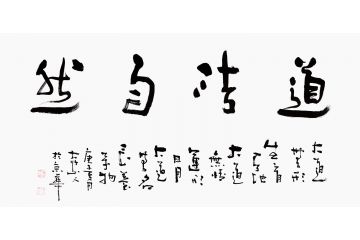 道法自然
大道
無形
生育
天地
大道
無情
運行
日月
大道
無名
長養
萬物
庚子夏月
山人
於京華